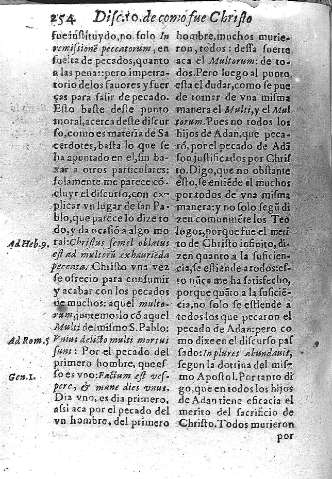 254 Disc.10. de como fue Christo
fue instituydo, no solo In
remissionẽ peccatorum, en
suelta de pecados, quanto
a las penas: pero impetra-
torio de los fauores y fuer
ças para salir de pecado.
Esto baste deste punto
moral, acerca deste discur
so, como es materia de Sa
cerdotes, basta lo que se
ha apuntado en el, sin ba-
xar a otros particulares:
solamente me parece cõ-
cluyr el discurso, con ex-
plicar vn lugar de san Pa
blo, que parece lo dize to
do, y da ocasiõ a algo mo
Ad Heb. 9. ral: Christus semel oblatus
est ad multorũ exhaurieda
peccata: Christo vna vez
se ofrecio para consumir
y acabar con los pecados
de muchos: aquel multo-
rum, quiere mos lo cõ aquel
Multi del mismo S. Pablo:
Ad Rom. 5 Vnius delicto multi mortui
sunt: Por el pecado del
primero hombre, que es-
Gen. 1. so es vno: Factum est ves-
pere, & mane dies vnus.
Dia vno, es dia primero,
assi aca por el pecado del
vn hombre, del primero
hombre, muchos murie-
ron, todos: dessa suerte
aca el Multorum: de to-
dos. Pero luego al punto,
esta el dudar, como se pue
de tomar de vna misma
manera el Multi, y el Mul
torum. Pues no todos los
hijos de Adan, que peca-
rõ, por el pecado de Adã
son justificados por Chris
to. Digo, que no obstante
esto, se entiẽde el muchos
por todos de vna misma
manera: y no solo segũ di
zen comunmẽte los Teo
logos, porque fue el meri
to de Christo infinito, di-
zen quanto a la suficien-
cia, se estiende a todos: es-
to nũca me ha satisfecho,
porque quãto a la suficiẽ-
cia, no solo se estiende a
todos los que pecaron el
pecado de Adan: pero co
mo dixe en el discurso pas
sado: In plures abundauit,
segun la dotrina del mis-
mo Apostol. Por tanto di
go, que en todos los hijos
de Adan tiene eficacia el
merito del sacrificio de
Christo. Todos murieron
por